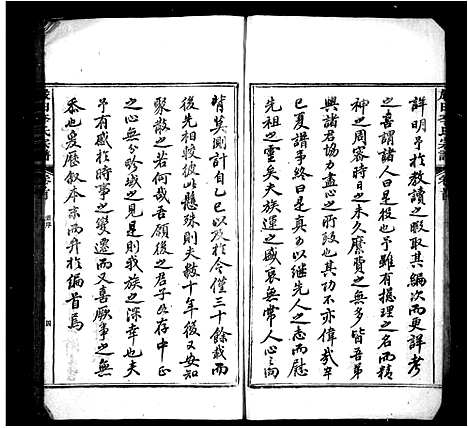 詳明予於教讀之暇取其編次而更詳考
之喜謂諸人曰是役也予雖有總理之名而精
神之周容時日之未久糜費之無多皆吾弟
與諸君協力盡心之所致也其功不亦偉哉辛
巳夏譜事終曰是真可以继先人之志而慰
先祖之靈矣夫族運之盛衰無常人心之向
背莫測計自乙巳以致於今僅三十餘載而
後先相較彼此懸殊則夫数十年後又安知
聚散之若何哉吾願後之君子允存中正
之心無分畛域之見是則我族之深幸也夫
予有感於時事之變遷而又喜厥事之無
忝也爰歷叙本宗而弁於編首焉
李氏宗譜
卷首
四